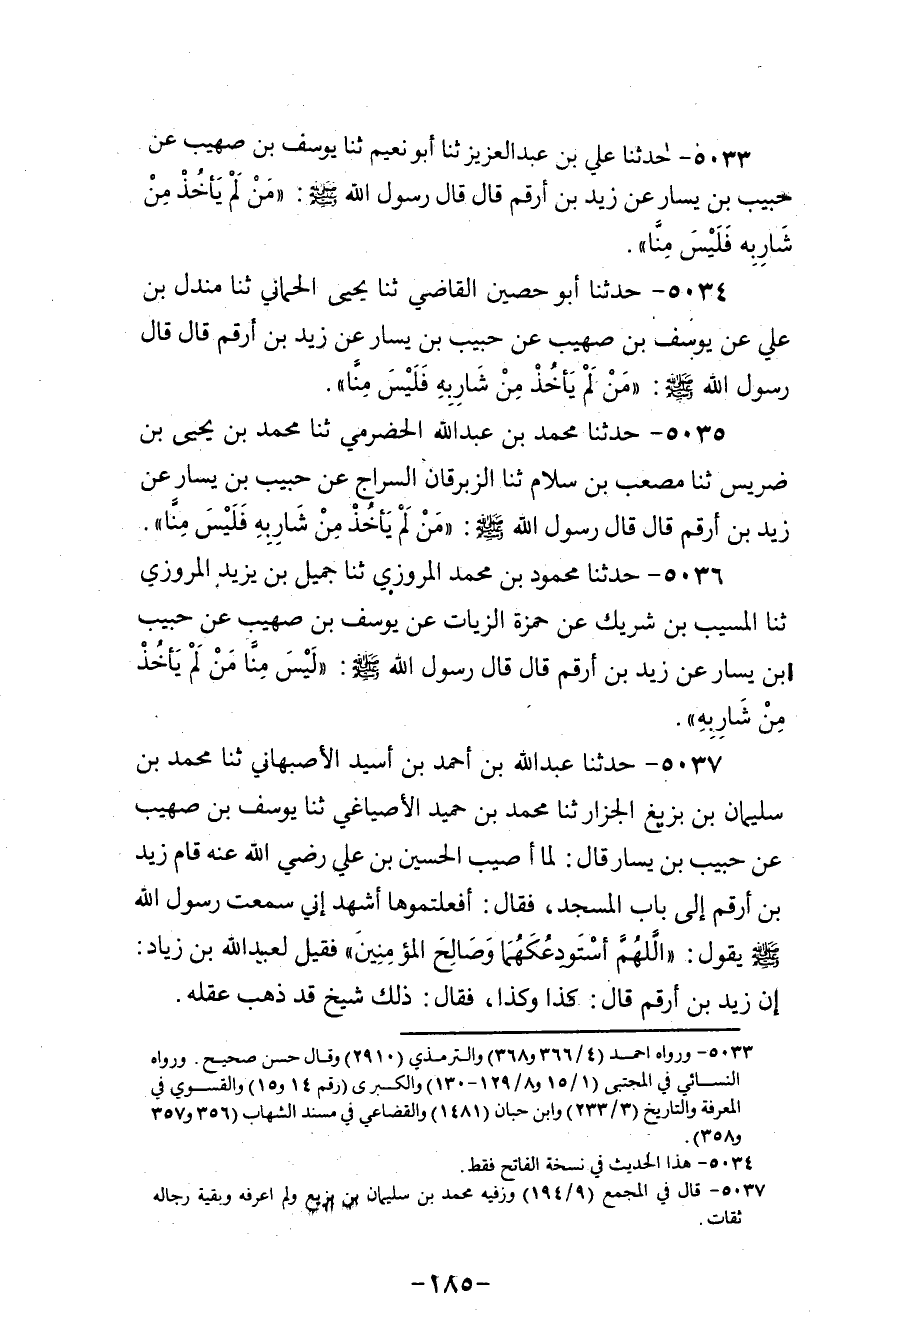 ٥٠٣٣- حدثنا علي بن عبدالعزيز ثنا أبو نعيم ثنا يوسف بن صهيب عن
حبيب بن يسار عن زيد بن أرقم قال قال رسول الله ﷺ : «مَنْ لَمْ يَأخُذْ مِنْ
شَارِبِه فَلَيْسَ مِنَّا» .
٥٠٣٤- حدثنا أبو حصين القاضي ثنا يحيى الحماني ثنا مندل بن
علي عن يوسف بن صهيب عن حبيب بن يسار عن زيد بن أرقم قال قال
رسول الله ﷺ : «مَنْ لَمْ يَأخُذْ مِنْ شَارِبِهِ فَلَيْسَ مِنَّا» .
٥٠٣٥- حدثنا محمد بن عبدالله الحضرمي ثنا محمد بن يحيى بن
ضريس ثنا مصعب بن سلام ثنا الزبرقان السراج عن حبيب بن يسار عن
زيد بن أرقم قال قال رسول الله ﷺ : «مَنْ لَمْ يَأخُذْ مِنْ شَارِبِهِ فَلَيْسَ مِنَّا» .
٥٠٣٦- حدثنا محمود بن محمد المروزي ثنا جميل بن يزيد المروزي
ثنا المسيب بن شريك عن حمزة الزيات عن يوسف بن صهيب عن حبيب
ابن يسار عن زيد بن أرقم قال قال رسول الله ﷺ : «لَيْسَ مِنَّا مَنْ لَمْ يَأخُذْ
مِنْ شَارِبِهِ» .
٥٠٣٧- حدثنا عبدالله بن أحمد بن أسيد الأصبهاني ثنا محمد بن
سليمان بن بزيغ الجزار ثنا محمد بن حميد الأصباغي ثنا يوسف بن صهيب
عن حبيب بن يسار قال : لما أصيب الحسين بن علي رضي الله عنه قام زيد
بن أرقم إلى باب المسجد ، فقال : أفعلتموها أشهد إني سمعت رسول الله
ﷺ يقول : «الَّلهُمَّ أسْتَودِعُكَهُمَا وَصَالِحَ المؤمِنِينَ» فقيل لعبدالله بن زياد :
إن زيد بن أرقم قال : كذا وكذا ، فقال : ذلك شيخ قد ذهب عقله .
٥٠٣٣- ورواه احمد (٤/ ٣٦٦ و٣٦٨) والترمذي (٢٩١٠) وقال حسن صحيح . ورواه
النسائي في المجتبى (١/ ١٥ و٨/ ١٢٩-١٣٠) والكبرى (رقم ١٤ و١٥) والفسوي في
المعرفة والتاريخ (٣/ ٢٣٣) وابن حبان (١٤٨١) والقضاعي في مسند الشهاب (٣٥٦ و٣٥٧
و٣٥٨).
٥٠٣٤- هذا الحديث في نسخة الفاتح فقط.
٥٠٣٧- قال في المجمع (٩/ ١٩٤) وزفيه محمد بن سليمان بن بزيع ولم اعرفه وبقية رجاله
ثقات .
-١٨٥-